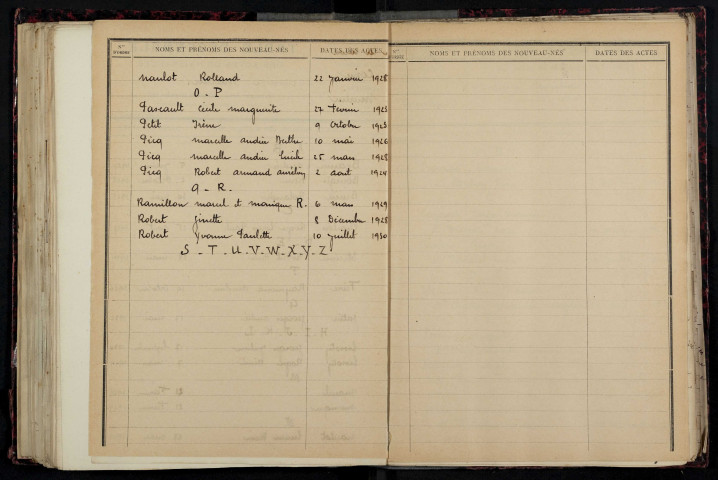 Nos D'ORDRE NOMS ET PRÉNOMS DES NOUVEAU-NÉS DATES DES ACTES
naulot Rolland 22 Janvier 1928
O - P
Pascault Cécile marguerite 27 Fevrier 1925
Petit Irène 9 Octobre 1923
Picq marcelle andrée Berthe 10 mai 1926
Picq marcelle andrée Lucile 25 mars 1928
Picq Robert armand aurélien 2 aout 1924
Q - R.
Ramillon marcel et monique R. 6 mars 1929
Robert Ginette 8 Décembre 1928
Robert Yvonne Paulette 10 Juillet 1930
S - T - U - V - W - X - Y - Z
Nos D'ORDRE NOMS ET PRÉNOMS DES NOUVEAU-NÉS DATES DES ACTES